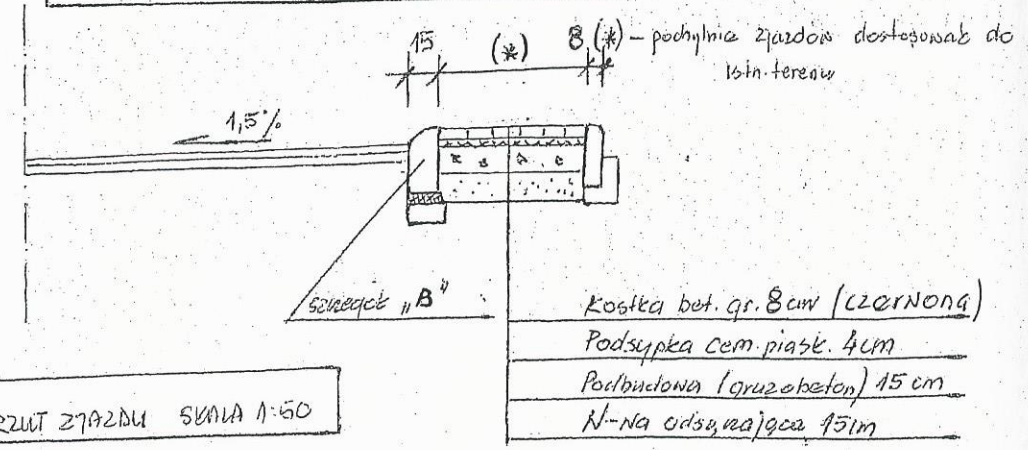 15 (*) 8 (*) – pochylnie zjazdów dostosować do
istn. terenu
1,5%
szczegół „B"
Kostka bet. gr. 8 cm (czerwona)
Podsypka cem. piask. 4cm
Podbudowa (gruzobeton) 15 cm
W-wa odsączająca 15cm
RZUT ZJAZDU SKALA 1:50